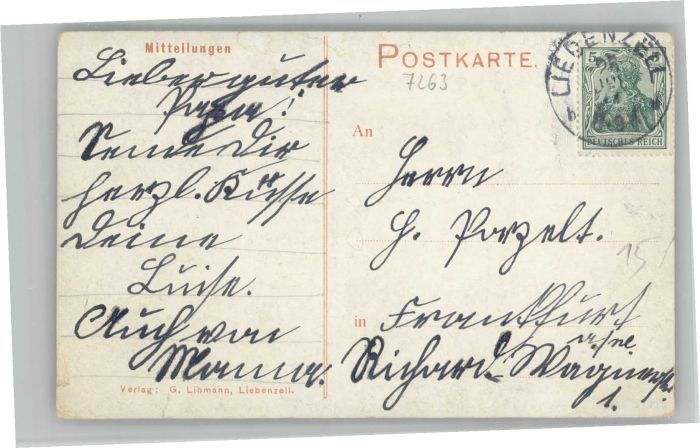 Mitteilungen
Lieber guter
Papa!
Sende Dir
herzl. Küsse
Deine
Luise.
Auch von
Mamma.
Verlag: G. Lihmann, Liebenzell.
POSTKARTE.
7263
LIEBENZELL
5
DEUTSCHES REICH
An
Herrn
H. Porzelt.
15
in Frankfurt
a/
Richard-Wagnerstr.
1.